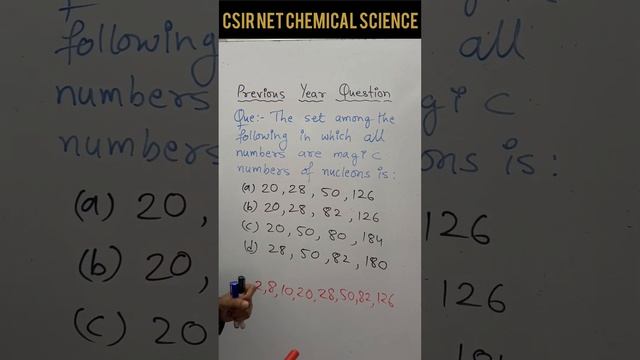 CSIR NET CHEMICAL SCIENCE
Previous Year Question
Que:- The set among the
following in which all
numbers are magic
numbers of nucleons is:
(a) 20, 28, 50, 126
(b) 20, 28, 82, 126
(c) 20, 50, 80, 184
(d) 28, 50, 82, 180
2,8,10,20,28,50,82,126